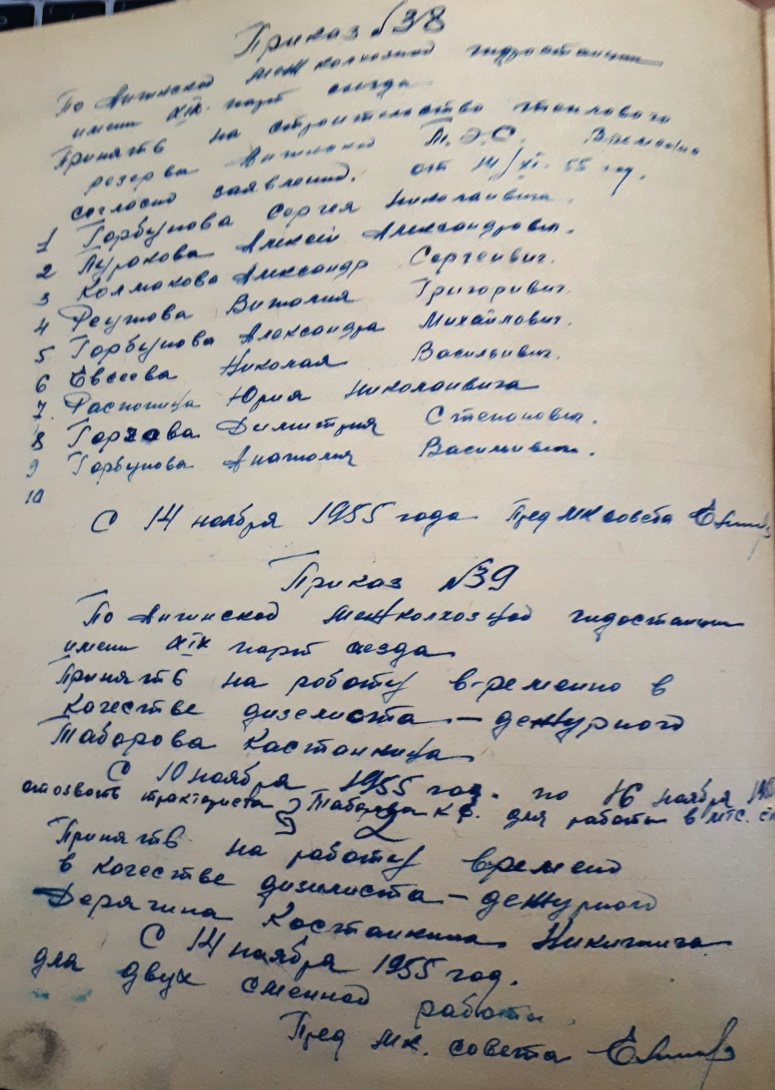 Приказ №38
По Ангинской межколхозной гидростанции
имени XIX парт съезда
Принять на строительство теплового
резерва Ангинской М.Э.С. Временно
согласно заявлений. от 14/XI-55 год.
1 Горбунова Сергея Николаивича.
2 Алексей Александрович.
3 Колмакова Александр Сергеивич.
4 Виталия Григоривич.
5 Горбунова Александра Михайлович.
6 Евсеева Николая Васильивич.
7. Распопина Юрия Николаивича
8 Дилитрия Степанович.
9 Горбунова Анатолия Васильивич.
10
С 14 ноября 1955 года Пред МК совета
Приказ №39
По Ангинской межколхозной гидостанции
имени XIX парт сезда
Принять на роботу временно в
когестве дизелиста – дежурного
Таборова
С 10 ноября 1955 год. по 16 ноября
отозвать тракториста Таборова К.Ф. для работы в мтс.
2
Принять на работу времено
в когестве дизилиста – дежурного
Дерягина Костанкина Никитига
С 14 ноября 1955 год.
для двух сменной работы.
Пред МК. совета